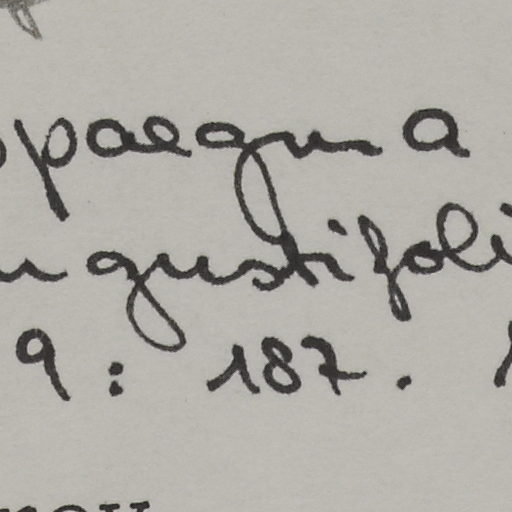 opaegna a
ngustifoli
9: 187. 1